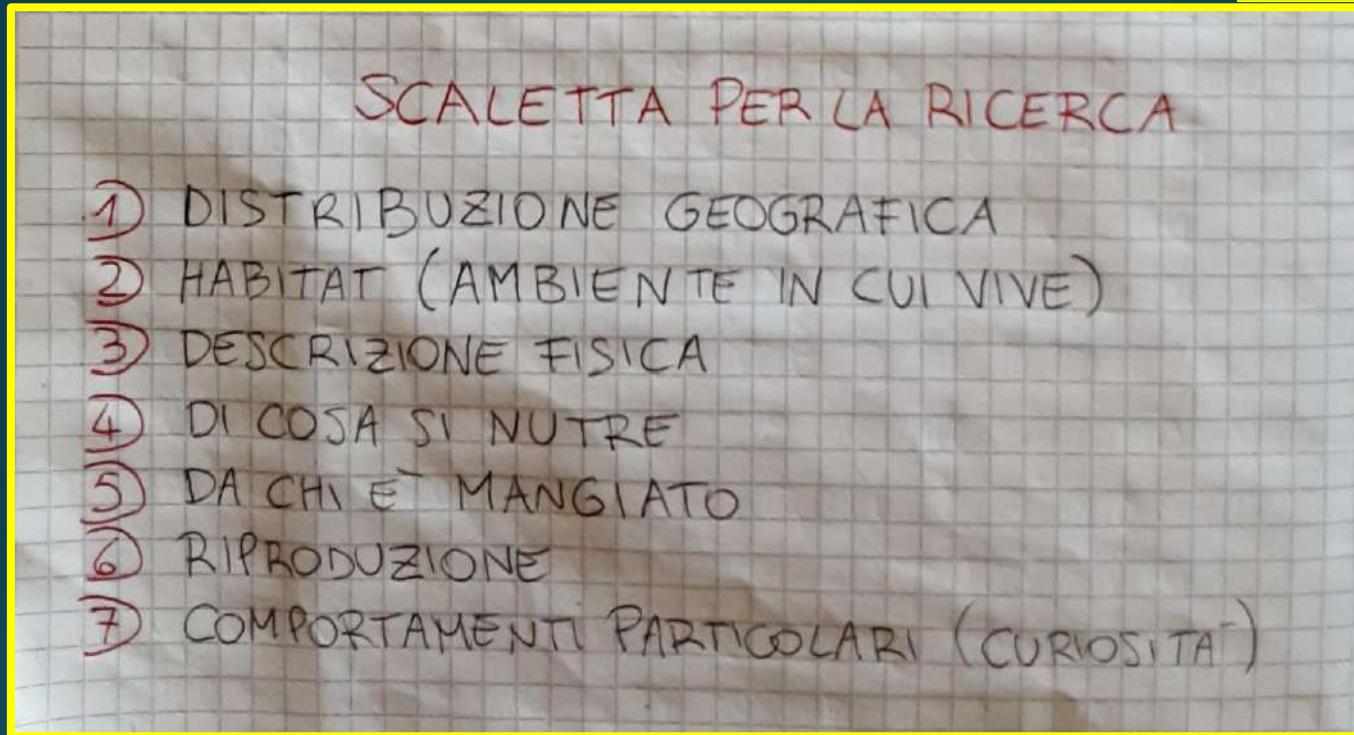 SCALETTA PER LA RICERCA
1 DISTRIBUZIONE GEOGRAFICA
2 HABITAT (AMBIENTE IN CUI VIVE)
3 DESCRIZIONE FISICA
4 DI COSA SI NUTRE
5 DA CHI È MANGIATO
6 RIPRODUZIONE
7 COMPORTAMENTI PARTICOLARI (CURIOSITÀ)